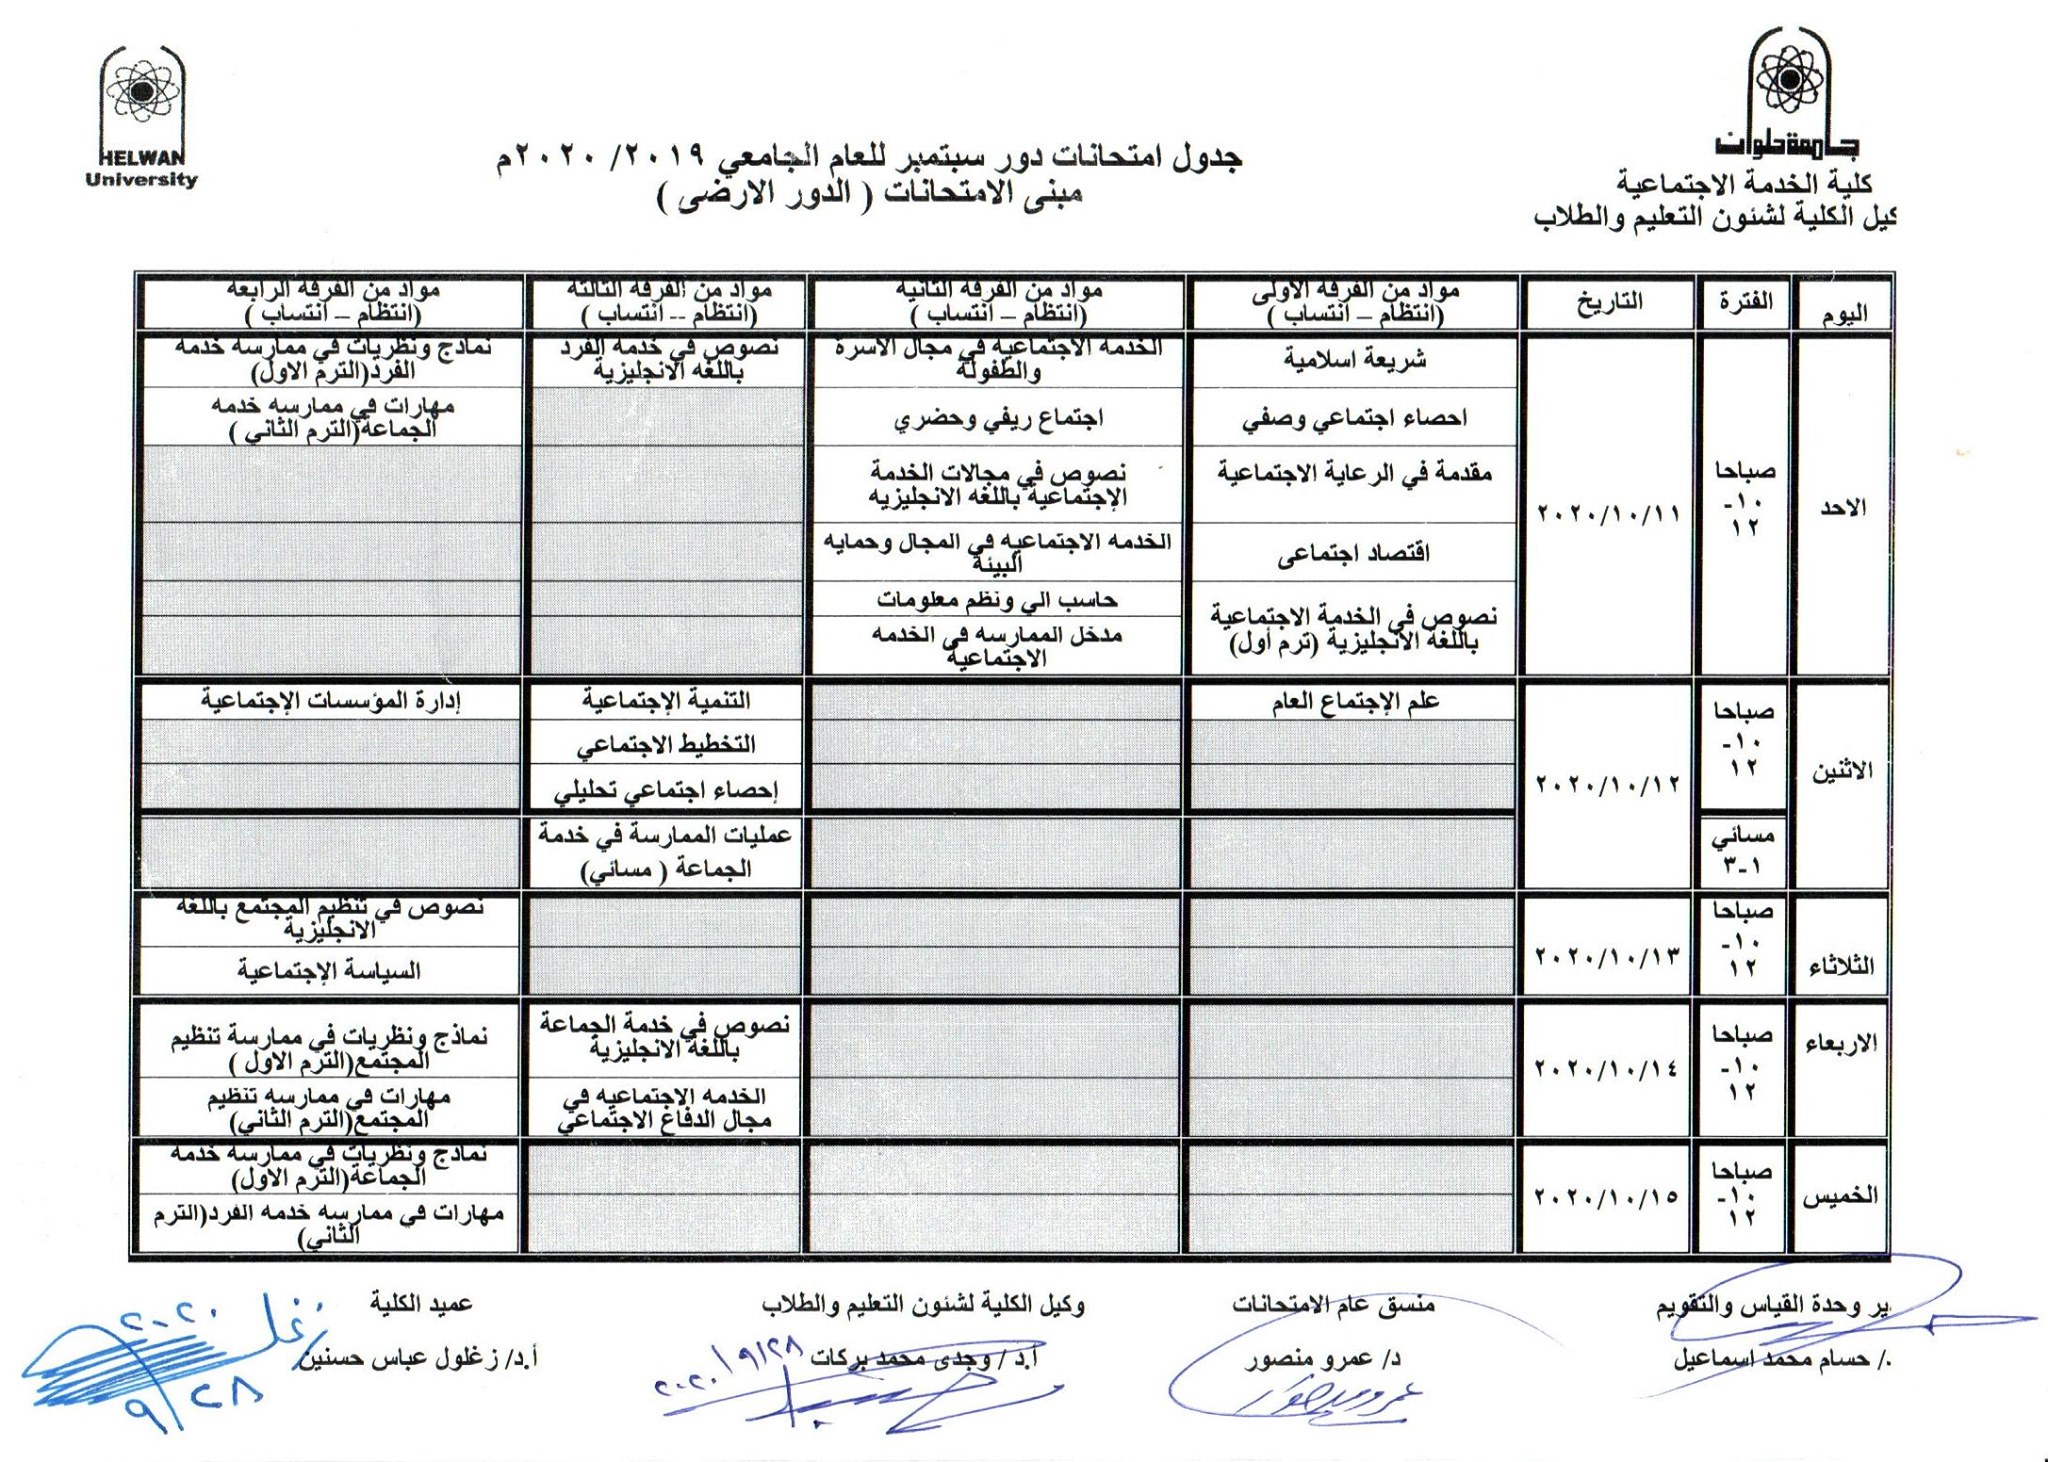 HELWAN
University
جامعة حلوان
كلية الخدمة الاجتماعية
كيل الكلية لشئون التعليم والطلاب
جدول امتحانات دور سبتمبر للعام الجامعي ٢٠١٩/ ٢٠٢٠م
مبنى الامتحانات ( الدور الارضى )
اليوم
الفترة
التاريخ
مواد من الفرقه الاولى
(انتظام – انتساب )
مواد من الفرقه الثانية
(انتظام – انتساب )
مواد من الفرقه الثالثة
(انتظام -- انتساب )
مواد من الفرقه الرابعه
(انتظام – انتساب )
الاحد
صباحا
١٠-
١٢
٢٠٢٠/١٠/١١
شريعة اسلامية
احصاء اجتماعي وصفي
مقدمة في الرعاية الاجتماعية
اقتصاد اجتماعى
نصوص في الخدمة الاجتماعية
باللغة الانجليزية (ترم أول)
الخدمه الاجتماعيه في مجال الاسرة
والطفولة
اجتماع ريفي وحضري
نصوص في مجالات الخدمة
الإجتماعية باللغه الانجليزيه
الخدمه الاجتماعيه في المجال وحمايه
البيئة
حاسب الي ونظم معلومات
مدخل الممارسه في الخدمه
الاجتماعية
نصوص في خدمة الفرد
باللغه الانجليزية
نماذج ونظريات في ممارسه خدمه
الفرد(الترم الاول)
مهارات في ممارسه خدمه
الجماعة(الترم الثاني )
الاثنين
صباحا
١٠-
١٢
٢٠٢٠/١٠/١٢
علم الإجتماع العام
التنمية الإجتماعية
التخطيط الاجتماعي
إحصاء اجتماعي تحليلي
إدارة المؤسسات الإجتماعية
مسائي
١-٣
عمليات الممارسة في خدمة
الجماعة ( مسائي)
الثلاثاء
صباحا
١٠-
١٢
٢٠٢٠/١٠/١٣
نصوص في تنظيم المجتمع باللغه
الانجليزية
السياسة الإجتماعية
الاربعاء
صباحا
١٠-
١٢
٢٠٢٠/١٠/١٤
نصوص في خدمة الجماعة
باللغه الانجليزية
الخدمه الاجتماعيه في
مجال الدفاع الاجتماعي
نماذج ونظريات في ممارسة تنظيم
المجتمع(الترم الاول )
مهارات في ممارسه تنظيم
المجتمع(الترم الثاني)
الخميس
صباحا
١٠-
١٢
٢٠٢٠/١٠/١٥
نماذج ونظريات في ممارسه خدمه
الجماعة(الترم الاول)
مهارات في ممارسه خدمه الفرد(الترم
الثاني)
ير وحدة القياس والتقويم
./ حسام محمد اسماعيل
منسق عام الامتحانات
د/ عمرو منصور
عمرو منصور
وكيل الكلية لشئون التعليم والطلاب
أ.د / وجدى محمد بركات
٢٠٢٠/٩/٢٨
عميد الكلية
أ.د/ زغلول عباس حسنين
زغلول
٢٠٢٠
٩/٢٨